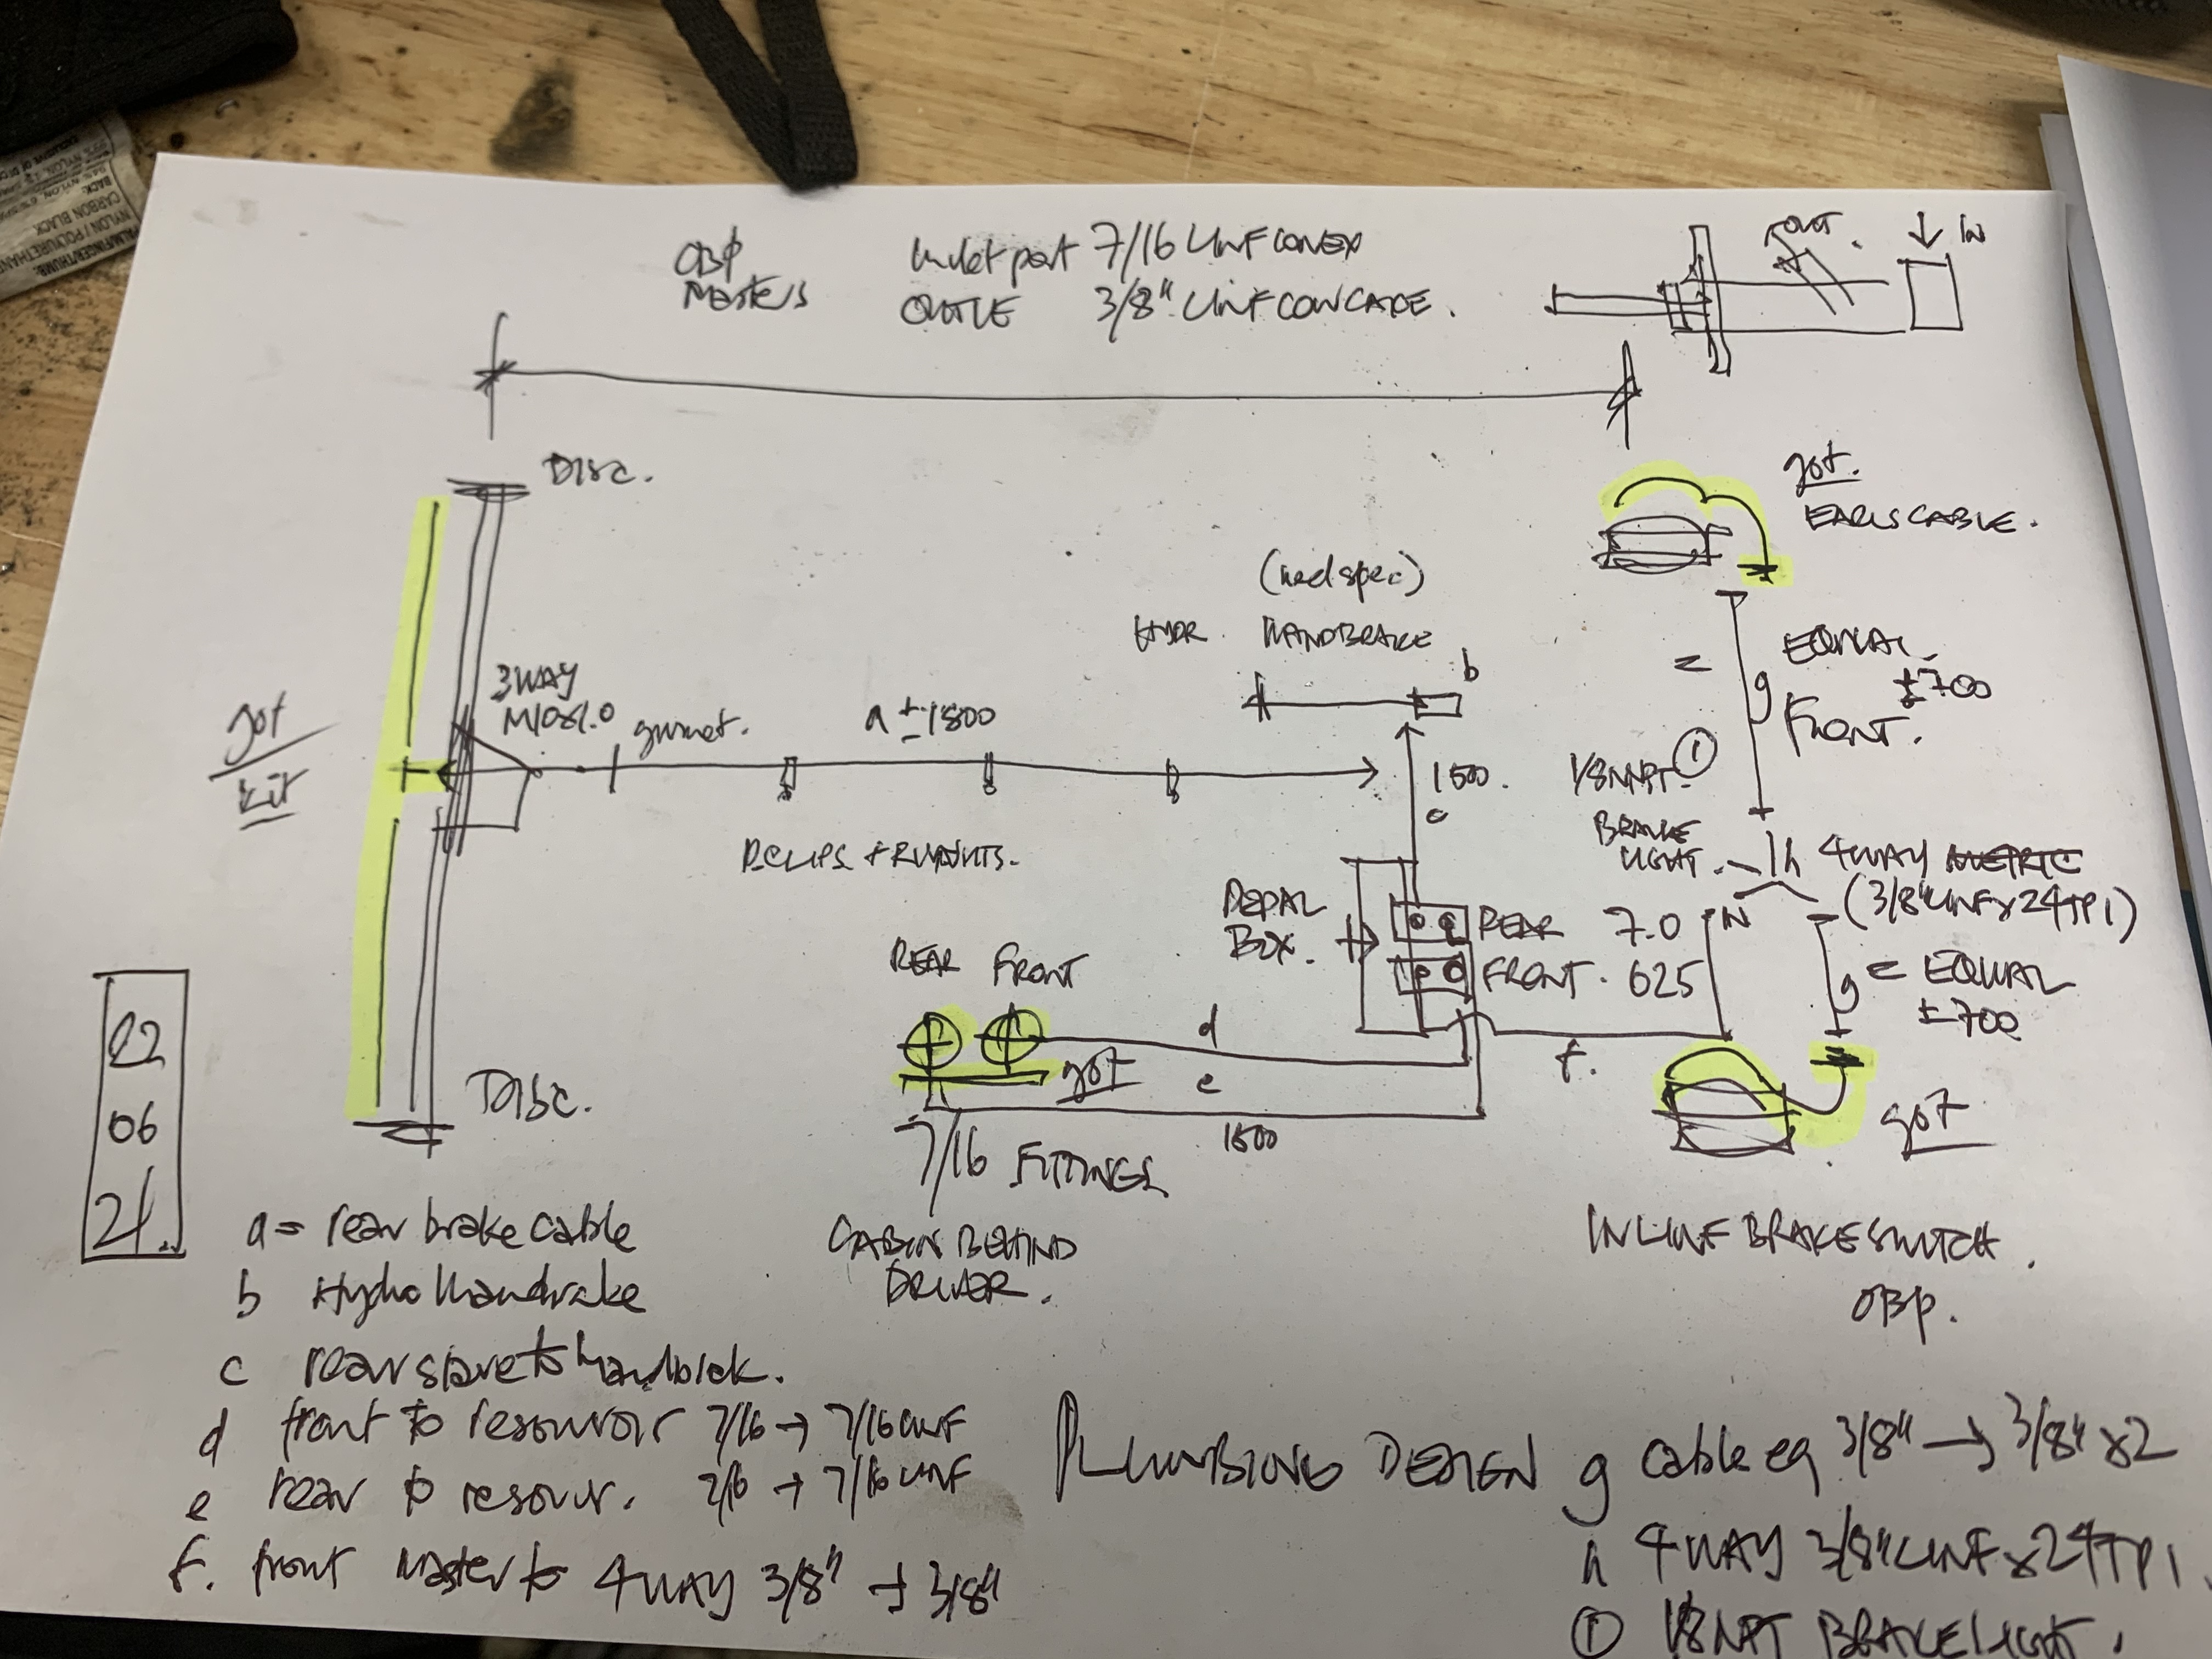 OBP
Masters
Inlet port 7/16 UNF CONEX
OUTLE 3/8" UNF CONCAVE.
OUT.
IN
DISC.
got.
EARLS CABLE.
(need spec)
HYDR. HANDBRAKE
b
=
g
EQUAL
±700
FRONT.
3WAY
M10x1.0
grumet.
a ±1800
got
kit
1500.
c
1/8 NPT
1
BRAKE
LIGHT.
h 4WAY METRIC
(3/8"UNFx24TPI)
PCLIPS + RIVNUTS.
PEDAL
BOX.
REAR 7.0
FRONT. 625
IN
g = EQUAL
±700
REAR FRONT
d
got
e
f.
1500
7/16 FITTINGS
CABIN BEHIND
DRIVER.
DISC.
got
INLINE BRAKE SWITCH.
OBP.
22
06
21.
a = rear brake cable
b Hydro Handrake
c rear slave to handbrk.
d front to resourvoir 7/16 → 7/16 UNF
e rear to resour. 7/16 → 7/16 UNF
f. front master to 4WAY 3/8" → 3/8"
PLUMBING DESIGN
g cable eq 3/8" → 3/8" x2
h 4WAY 3/8"UNFx24TPI.
1 1/8 NPT BRAKE LIGHT.